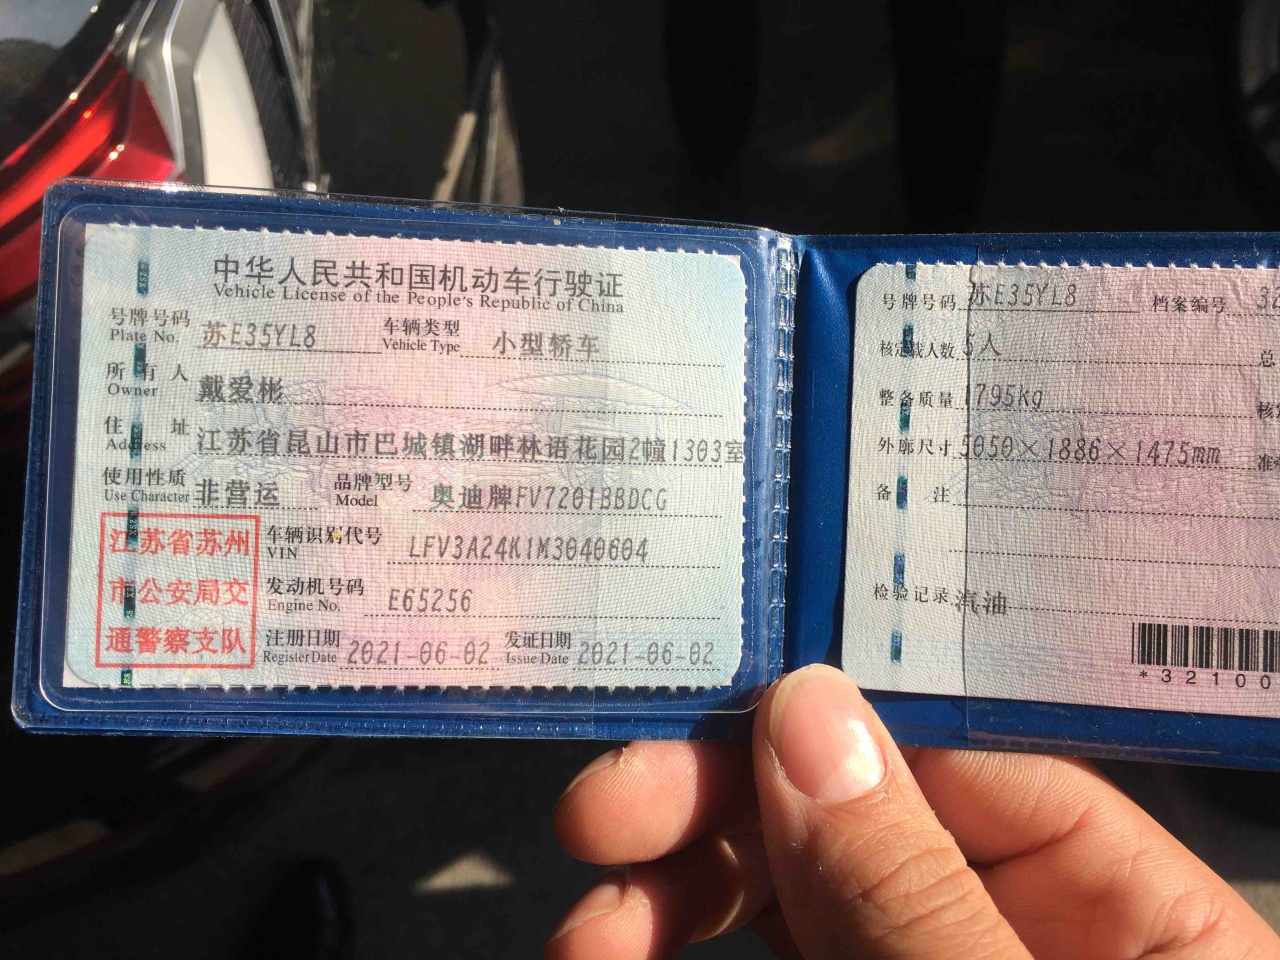 中华人民共和国机动车行驶证
Vehicle License of the People's Republic of China
号牌号码 苏E35YL8 车辆类型 小型轿车
Plate No. Vehicle Type
所有人 戴爱彬
Owner
住址 江苏省昆山市巴城镇湖畔林语花园2幢1303室
Address
使用性质 非营运 品牌型号 奥迪牌FV7201BBDCG
Use Character Model
江苏省苏州
市公安局交
通警察支队
车辆识别代号 LFV3A24K1M3040604
VIN
发动机号码 E65256
Engine No.
注册日期 2021-06-02 发证日期 2021-06-02
Register Date Issue Date
号牌号码 苏E35YL8 档案编号
核定载人数 5人 总
整备质量 1795kg 核
外廓尺寸 5050×1886×1475mm 准
备注
检验记录 汽油
*32100